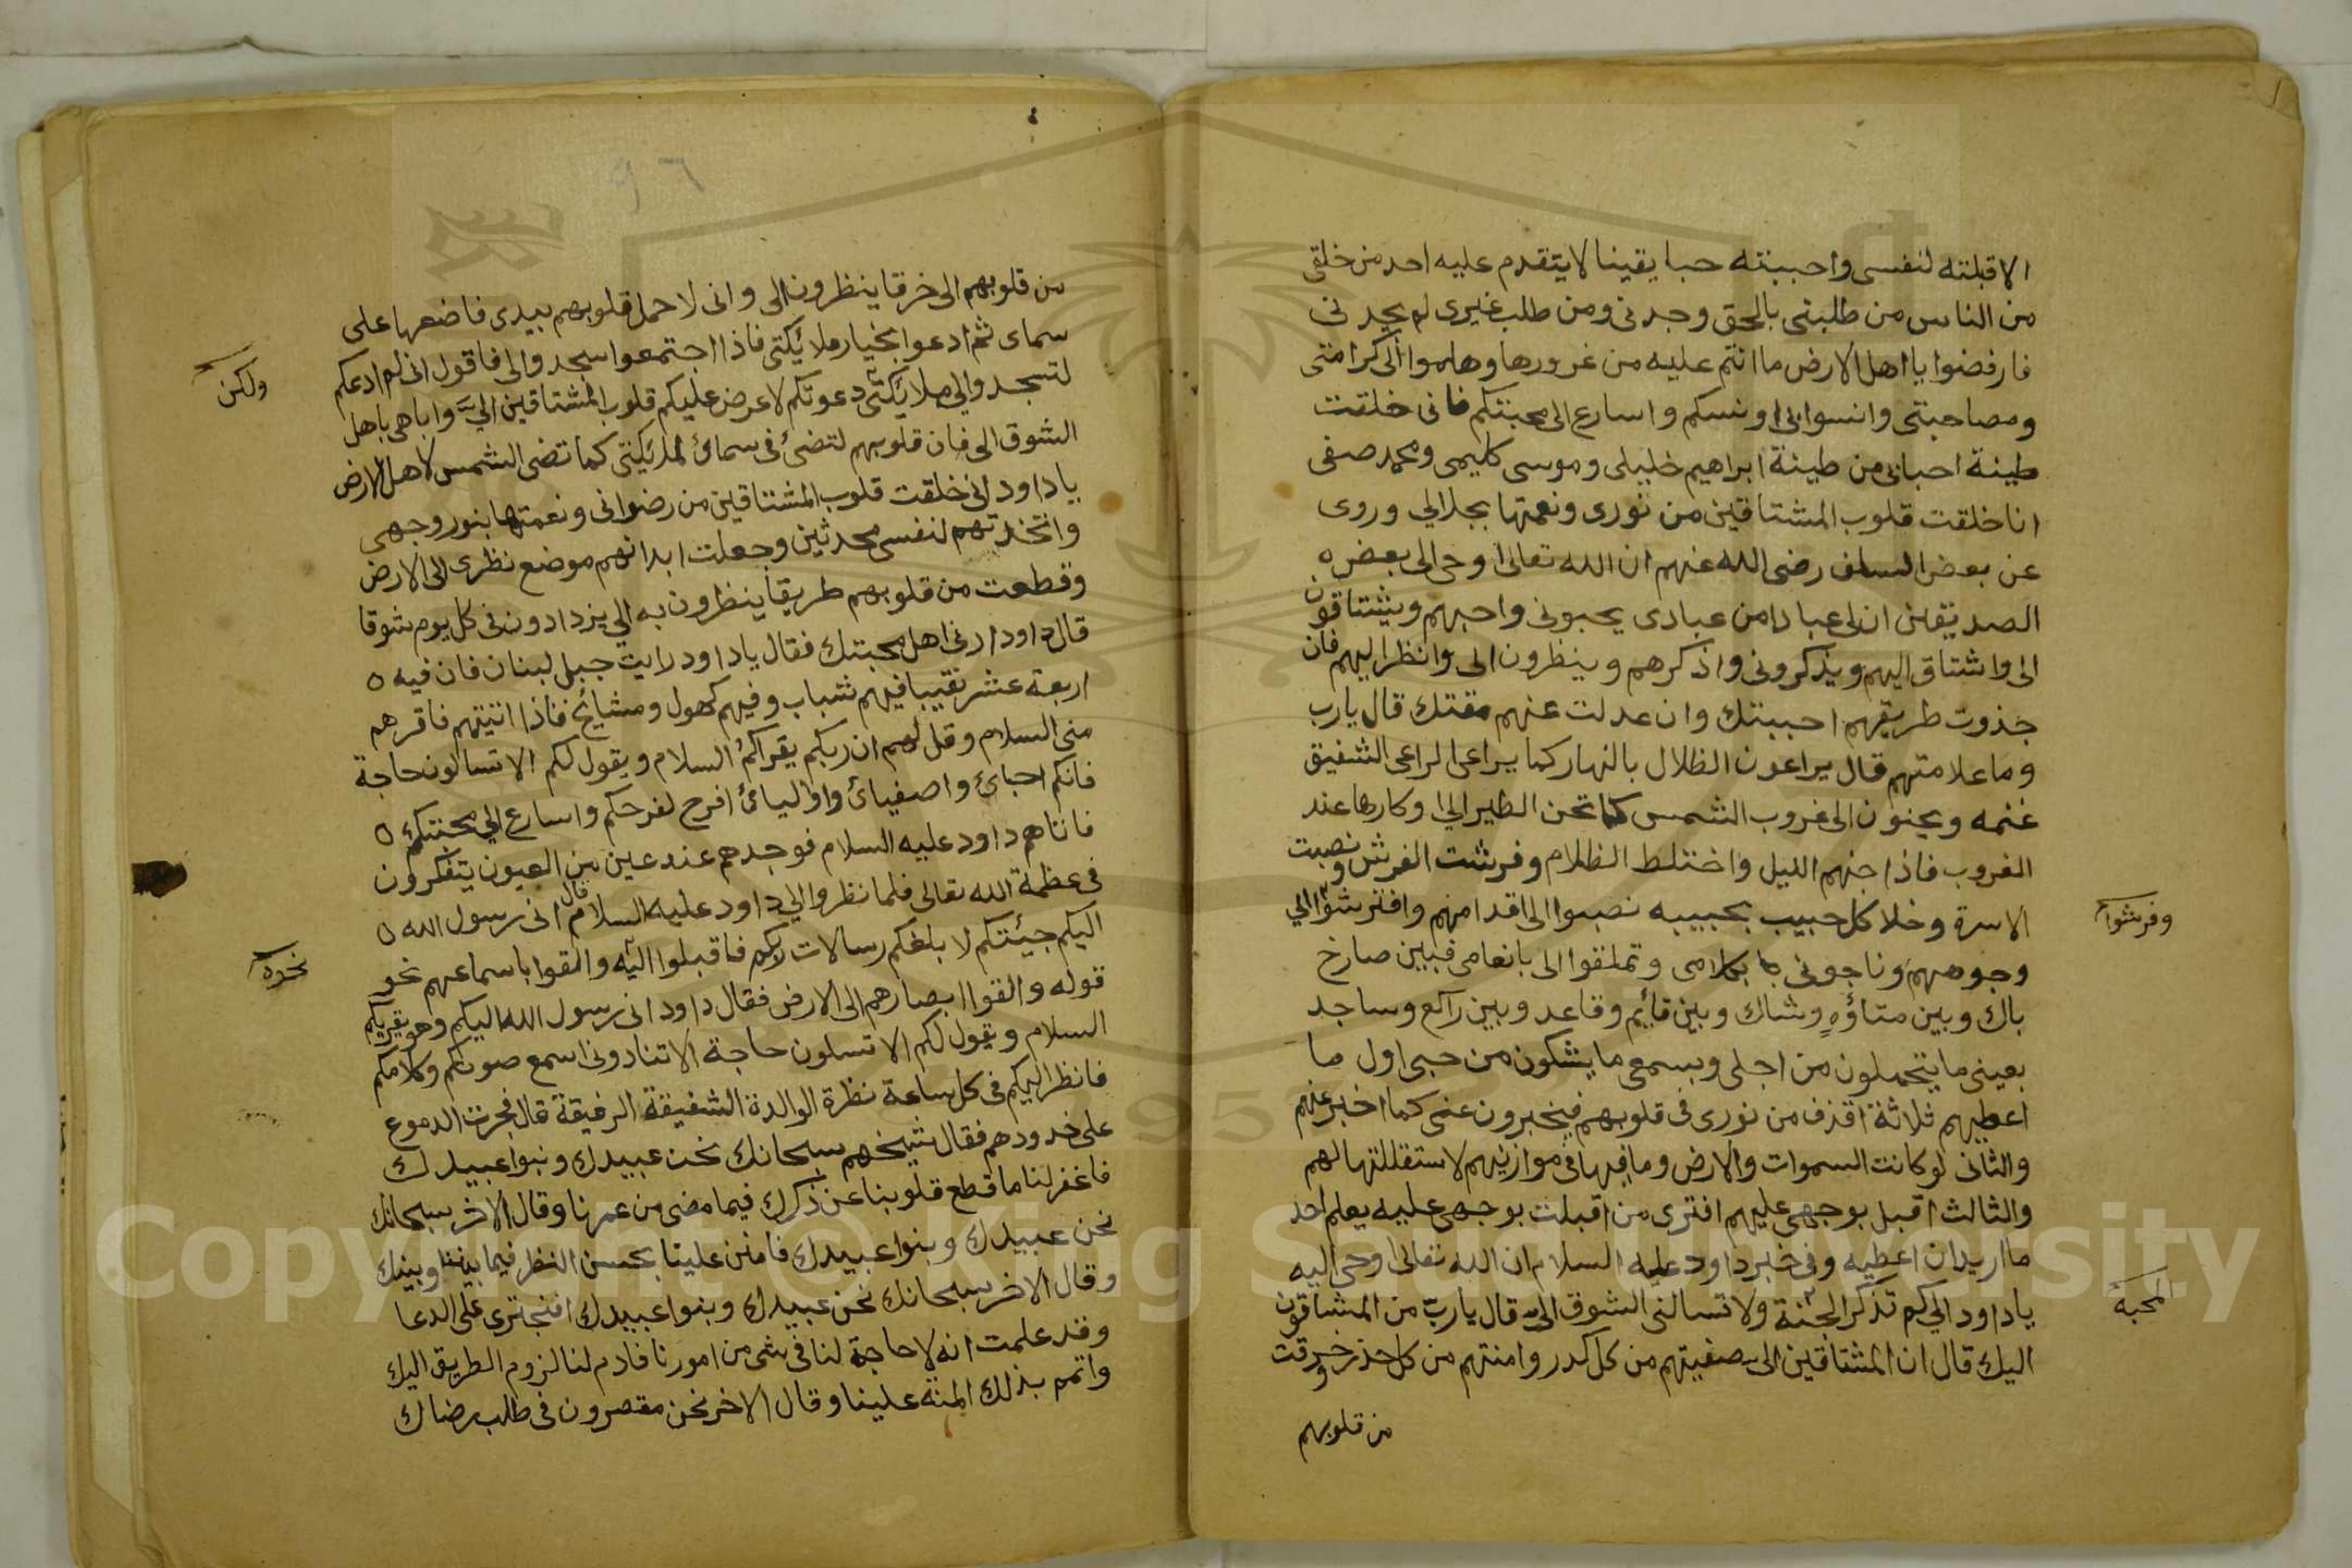 الا قبلته لنفسى واحببته حبا يقينا لا يتقدم عليه احد من خلقى
من الناس من طلبنى بالحق وجدنى ومن طلب غيرى لم يجدنى
فارفضوا يا اهل الارض ما انتم عليه من غرورها وهلموا الى كرامتى
ومصاحبتى وانسوا بى اونسكم واسارع الى محبتكم فانى خلقت
طينة احبائى من طينة ابراهيم خليلى وموسى كليمى ومحمد صفى
انا خلقت قلوب المشتاقين من نورى ونعمتها بجلالي وروى
عن بعض السلف رضى الله عنهم ان الله تعالى اوحى الى بعض ه
الصديقين ان لى عبادا من عبادى يحبونى واحبهم ويشتاقون
الى واشتاق اليهم ويذكرونى واذكرهم وينظرون الى وانظر اليهم فان
حذوت طريقهم احببتك وان عدلت عنهم مقتك قال يارب
وما علامتهم قال يراعون الظلال بالنهار كما يراعى الراعى الشفيق
غنمه ويحنون الى غروب الشمس كما تحن الطير الي اوكارها عند
الغروب فاذا جنهم الليل واختلط الظلام وفرشت الفرش ونصبت
الاسرة وخلا كل حبيب بحبيبه نصبوا الى اقدامهم وافترشوا الي
وفرشوا
وجوههم وناجونى بكلامى وتملقوا الى بانعامى فبين صارخ
باك وبين متأوه وشاك وبين قايم وقاعد وبين راكع وساجد
بعينى ما يتحملون من اجلى وبسمعى ما يشكون من حبى اول ما
اعطيهم ثلاثة اقذف من نورى فى قلوبهم فيخبرون عنى كما اخبر عنهم
والثانى لو كانت السموات والارض وما فيها فى موازينهم لاستقللتها لهم
والثالث اقبل بوجهى عليهم افترى من اقبلت بوجهى عليه يعلم احد
ما اريد ان اعطيه وفى خبر داود عليه السلام ان الله تعالى اوحى اليه
يا داود الي كم تذكر الجنة ولا تسالنى الشوق الىّ قال يا ربّ من المشتاقون
المحبه
اليك قال ان المشتاقين الى صفيتهم من كل كدر وامنتهم من كل حذر وخرقت
من قلوبهم
٩٦
من قلوبهم الى خرقا ينظرون الى وانى لاحمل قلوبهم بيدى فاضعها على
سماى ثم ادعوا بخيار ملائكتى فاذا اجتمعوا سجدوا لى فاقول انى لم ادعكم
لتسجدوا لي ملائكتى دعوتكم لاعرض عليكم قلوب المشتاقين اليّ واباهى باهل
ولكن
الشوق الى فان قلوبهم لتضئ فى سمائ لملائكتى كما تضى الشمس لاهل الارض
يا داود انى خلقت قلوب المشتاقين من رضوانى ونعمتها بنور وجهى
واتخذتهم لنفسى محدثين وجعلت ابدانهم موضع نظرى الى الارض
وقطعت من قلوبهم طريقا ينظرون به الي يزدادون فى كل يوم شوقا
قال داود ارنى اهل محبتك فقال يا داود رايت جبل لبنان فان فيه ه
اربعة عشر نقيبا فيهم شباب وفيهم كهول ومشايخ فاذا اتيتهم فاقرهم
منى السلام وقل لهم ان ربكم يقراكم السلام ويقول لكم الا تسالون حاجة
فانكم احبائ واصفيائ واوليائ افرح لفرحكم واسارع الي محبتكم ه
فاتاهم داود عليه السلام فوجدهم عند عين من العيون يتفكرون
فى عظمة الله تعالى فلما نظروا الي داود عليه السلام قال انى رسول الله ه
اليكم جيئتكم لابلغكم رسالات ربكم فاقبلوا اليه والقوا باسماعهم نحو
نحوه
قوله والقوا ابصارهم الى الارض فقال داود انى رسول الله اليكم وهو يقريكم
السلام ويقول لكم الا تسلون حاجة الا تنادونى اسمع صوتكم وكلامكم
فانظر اليكم فى كل ساعة نظرة الوالدة الشفيقة الرفيقة قال فجرت الدموع
على خدودهم فقال شيخهم سبحانك نحن عبيدك وبنوا عبيدك
فاغفر لنا ما قطع قلوبنا عن ذكرك فيما مضى من عمرنا وقال الاخر سبحانك
نحن عبيدك وبنوا عبيدك فامنن علينا بحسن النظر فيما بيننا وبينك
وقال الاخر سبحانك نحن عبيدك وبنوا عبيدك افنجترى على الدعا
وقد علمت انه لا حاجة لنا فى شى من امورنا فادم لنا لزوم الطريق اليك
واتمم بذلك المنة علينا وقال الاخر نحن مقصرون فى طلب رضاك
Copyright © King Saud University